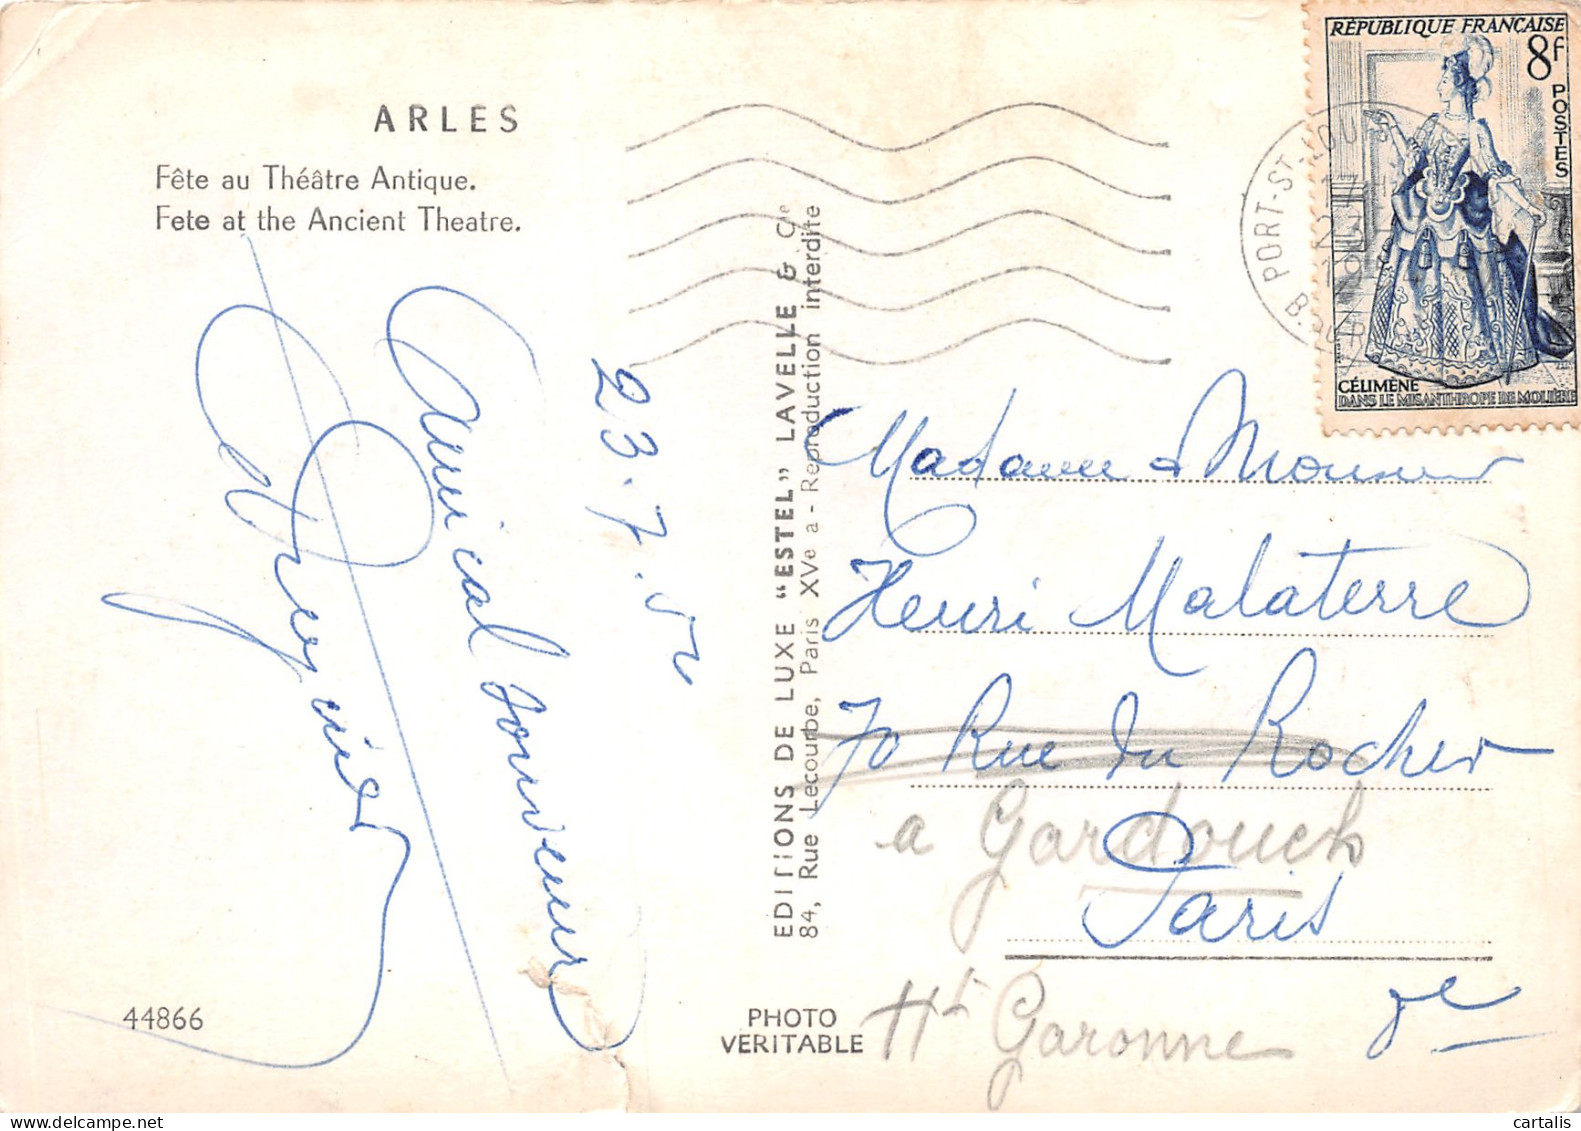 ARLES
Fête au Théâtre Antique.
Fete at the Ancient Theatre.
Amical souvenir
23.7.54
44866
EDITIONS DE LUXE "ESTEL" LAVELLE & Cie
84, Rue Lecourbe, Paris XVe a - Reproduction interdite
PHOTO
VERITABLE
RÉPUBLIQUE FRANÇAISE
8f
POSTES
CÉLIMÈNE
DANS LE MISANTHROPE DE MOLIÈRE
PORT-ST-LOUIS
17H
23-
19
B. DU R
Madame & Monsieur
Henri Malaterre
70 Rue du Rocher
a Gardouch
Paris
Ht Garonne
cartalis